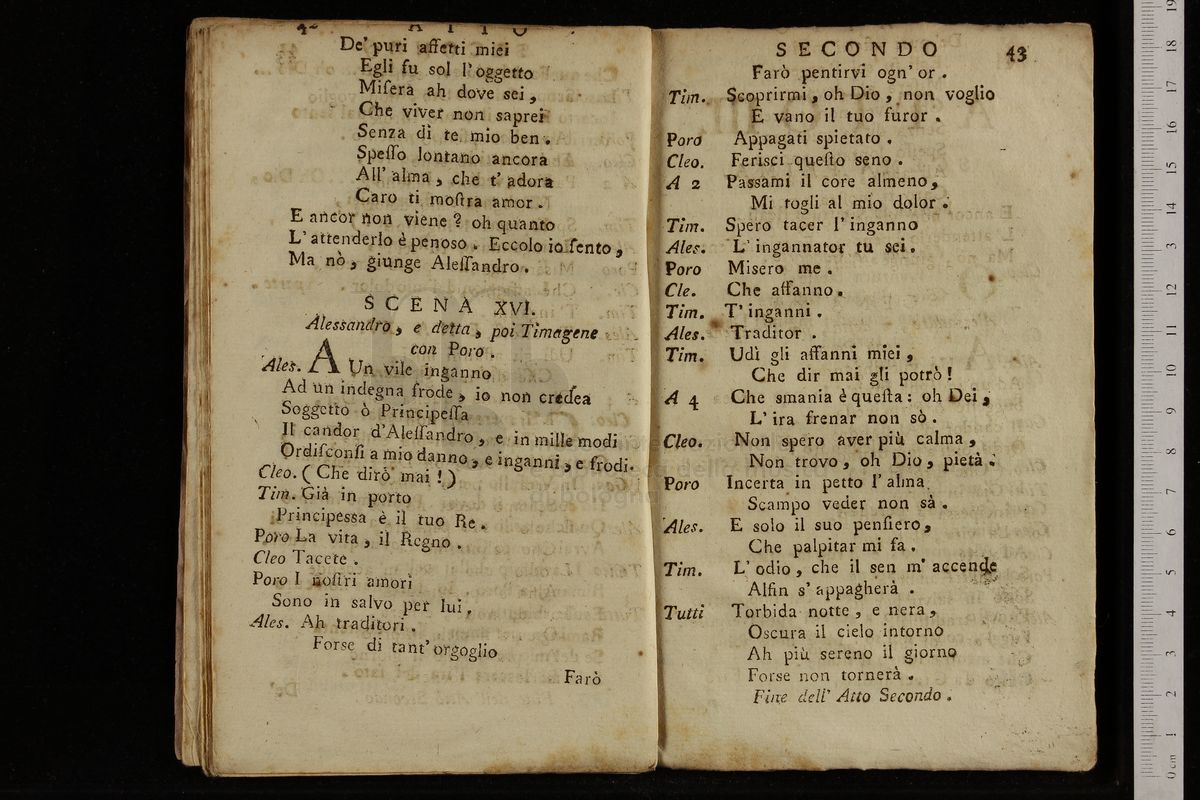 42 ATTO
De' puri affetti miei
Egli fu sol l' oggetto
Miſera ah dove sei,
Che viver non saprei
Senza di te mio ben.
Speſſo lontano ancora
All' alma, che t' adora
Caro ti moſtra amor.
E ancor non viene? oh quanto
L' attenderlo è penoso. Eccolo io ſento,
Ma nò, giunge Aleſſandro.
SCENA XVI.
Alessandro, e detta, poi Timagene
con Poro.
Ales. A Un vile inganno
Ad un indegna frode, io non credea
Soggetto ò Principeſſa
Il candor d'Aleſſandro, e in mille modi
Ordiſconſi a mio danno, e inganni, e frodi.
Cleo. (Che dirò mai!)
Tim. Già in porto
Principessa è il tuo Re.
Poro La vita, il Regno.
Cleo Tacete.
Poro I noſtri amori
Sono in salvo per lui.
Ales. Ah traditori.
Forse di tant' orgoglio
Farò
SECONDO 43
Farò pentirvi ogn' or.
Tim. Scoprirmi, oh Dio, non voglio
E vano il tuo furor.
Poro Appagati spietato.
Cleo. Ferisci queſto seno.
A 2 Passami il core almeno,
Mi togli al mio dolor.
Tim. Spero tacer l' inganno
Ales. L' ingannator tu sei.
Poro Misero me.
Cle. Che affanno.
Tim. T' inganni.
Ales. Traditor.
Tim. Udì gli affanni miei,
Che dir mai gli potrò!
A 4 Che smania è queſta: oh Dei,
L' ira frenar non sò.
Cleo. Non spero aver più calma,
Non trovo, oh Dio, pietà.
Poro Incerta in petto l' alma
Scampo veder non sà.
Ales. E solo il suo penſiero,
Che palpitar mi fa.
Tim. L' odio, che il sen m' accende
Alfin s' appagherà.
Tutti Torbida notte, e nera,
Oscura il cielo intorno
Ah più sereno il giorno
Forse non tornerà.
Fine dell' Atto Secondo.